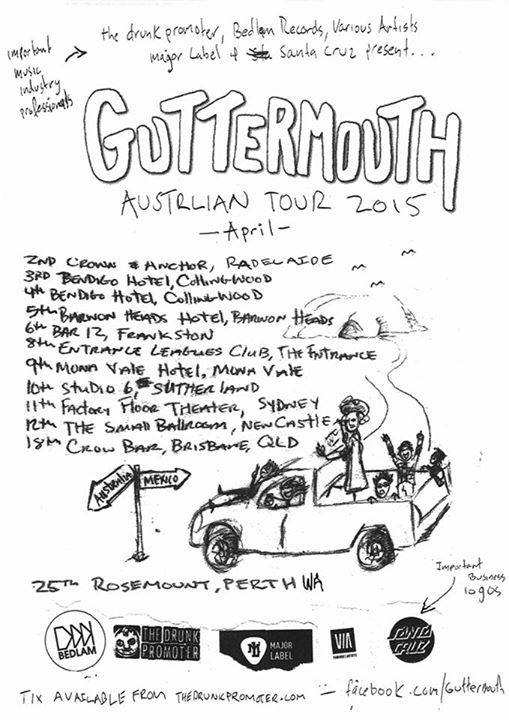 the drunk promoter, Bedlam Records, Various Artists
major Label & Santa Cruz present...
important
music
industry
professionals
GUTTERMOUTH
AUSTRLIAN TOUR 2015
-April-
2ND CROWN & ANCHOR, RADELAIDE
3RD BENDIGO HOTEL, COLLINGWOOD
4th BENDIGO HOTEL, COLLINGWOOD
5th BARWON HEADS HOTEL, BARWON HEADS
6th BAR 12, FRANKSTON
8th ENTRANCE LEAGUES CLUB, THE ENTRANCE
9th MONA VALE HOTEL, MONA VALE
10th STUDIO 6, SUTHERLAND
11th FACTORY FLOOR THEATER, SYDNEY
12th THE SMALL BALLROOM, NEWCASTLE
18th CROW BAR, BRISBANE, QLD
Australia
MEXICO
25th ROSEMOUNT, PERTH WA
Important
Business
logos
BEDLAM
THE DRUNK
PROMOTER
MAJOR
LABEL
VIA
VARIOUS ARTISTS
SANTA
CRUZ
TIX AVAILABLE FROM THEDRUNKPROMOTER.COM - facebook.com/Guttermouth